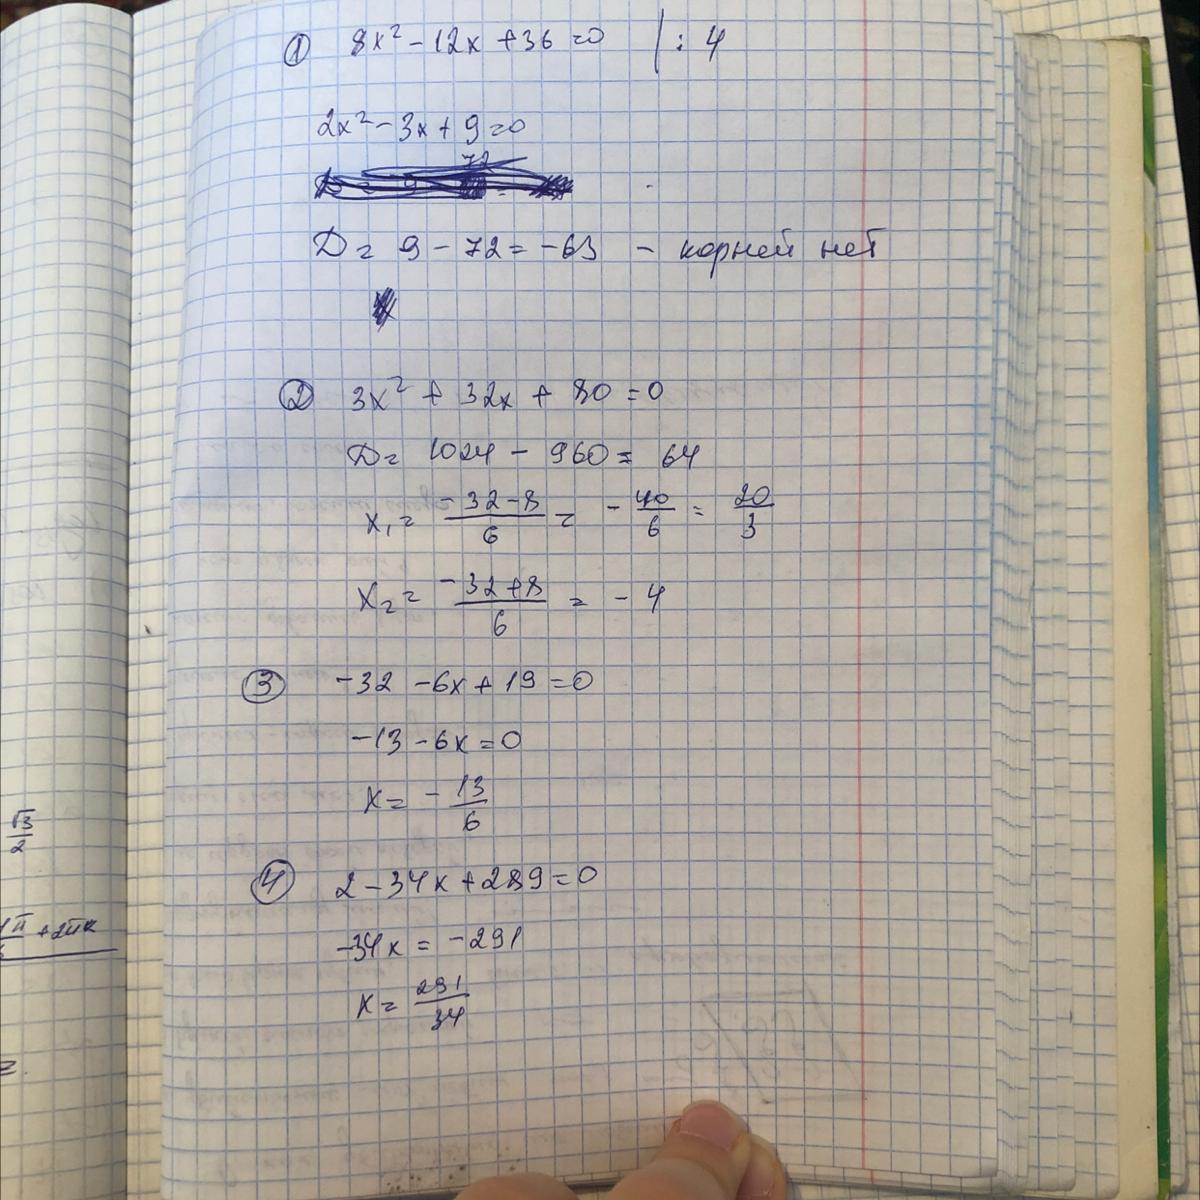 ① 8x² - 12x + 36 = 0 | : 4
2x² - 3x + 9 = 0
72
D = 9 - 72 = -63 - корней нет
② 3x² + 32x + 80 = 0
D = 1024 - 960 = 64
x₁ = (-32-8)/6 = -40/6 = 20/3
x₂ = (-32+8)/6 = -4
③ -32 - 6x + 19 = 0
-13 - 6x = 0
x = -13/6
④ 2 - 34x + 289 = 0
-34x = -291
x = 291/34
√3/2
+2πk